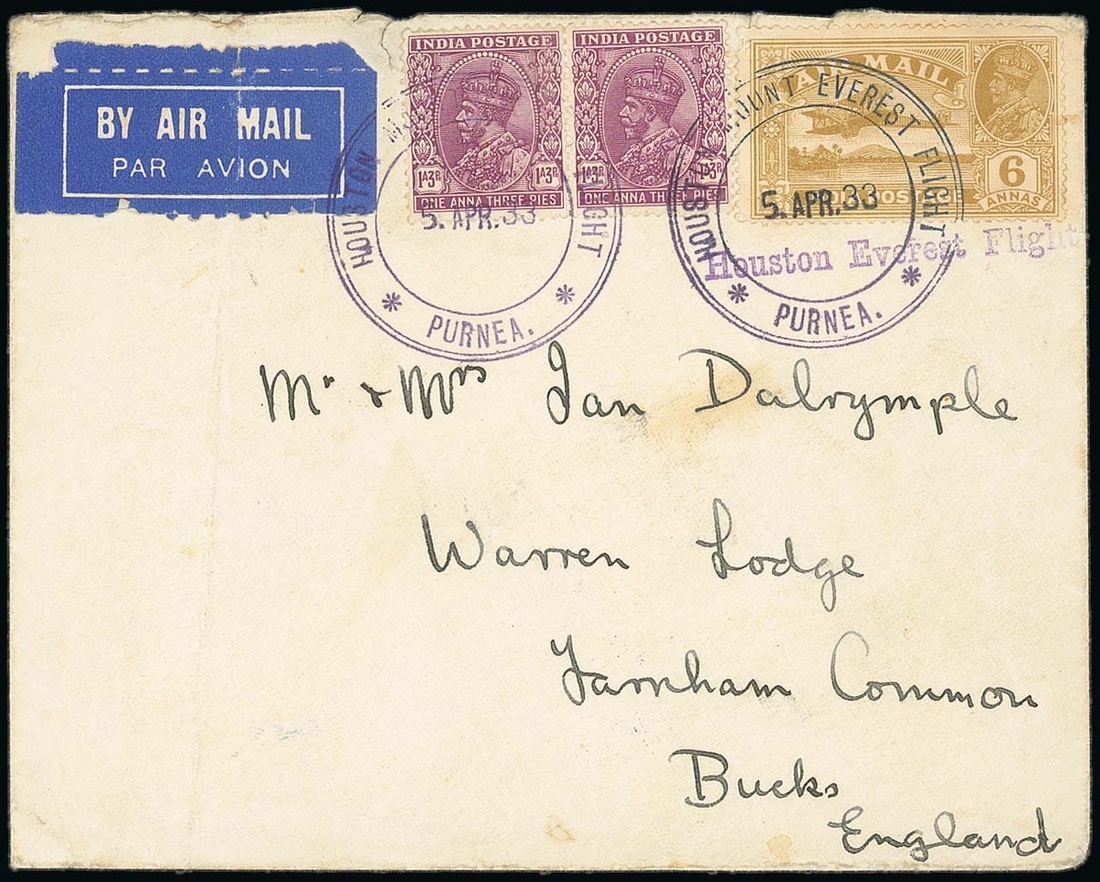 BY AIR MAIL
PAR AVION
INDIA POSTAGE
1A3P 1A3P
ONE ANNA THREE PIES
INDIA POSTAGE
1A3P 1A3P
ONE ANNA THREE PIES
AIR MAIL
6
ANNAS
HOUSTON MOUNT EVEREST FLIGHT
5. APR. 33
* PURNEA. *
HOUSTON MOUNT EVEREST FLIGHT
5. APR. 33
* PURNEA. *
Houston Everest Flight
Mr & Mrs Ian Dalrymple
Warren Lodge
Farnham Common
Bucks
England